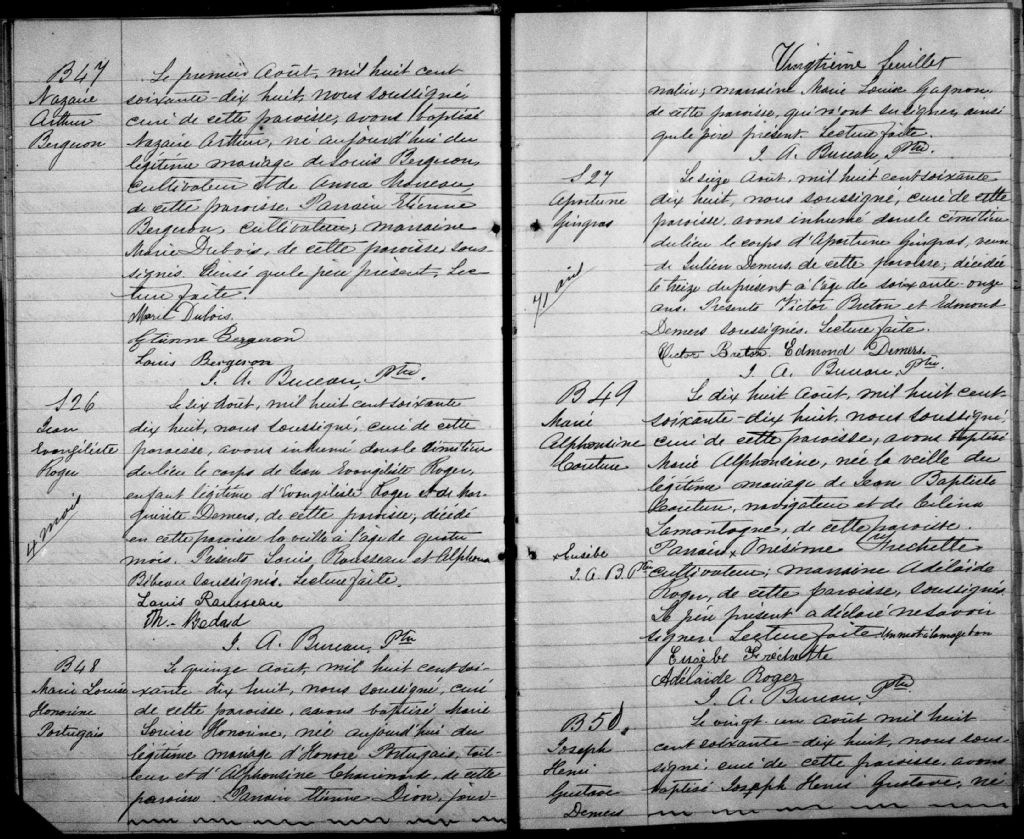 B 47
Nazaire
Arthur
Bergeron
Le premier Août, mil huit cent
soixante-dix huit, nous soussigné
curé de cette paroisse, avons baptisé
Nazaire Arthur, né aujourd'hui du
légitime mariage de Louis Bergeron,
cultivateur et de Anna
de cette paroisse. Parrain Etienne
Bergeron, cultivateur; marraine
Marie Dubois, de cette paroisse, sous-
signés. qu le père présent. Lec-
ture faite.
Marie Dubois.
Etienne Bergeron
Louis Bergeron
J. A. Bureau, Ptre.
S 26
Jean
Evangéliste
Roger
4 mois
Le six Août, mil huit cent soixante
dix huit, nous soussigné, curé de cette
paroisse, avons inhumé dans le cimetière
du lieu le corps de Jean Evangéliste Roger,
enfant légitime d'Evangéliste Roger et de Mar-
guerite Demers, de cette paroisse, décédé
en cette paroisse la veille à l'age de quatre
mois. Présents Louis Rousseau et Alphonse
Bibeau soussignés. Lecture faite.
Louis Rousseau
Th. Bedard
J. A. Bureau, Ptre
B 48
Marie Louise
Honorine
Portugais
Le quinze Août, mil huit cent soi-
xante dix huit, nous soussigné, curé
de cette paroisse, avons baptisé Marie
Louise Honorine, née aujourd'hui du
légitime mariage d'Honoré Portugais, tail-
leur et d'Alphonsine de cette
paroisse. Parrain Etienne Dion, jour-
Vingtième feuillet
nalier; marraine Marie Louise Gagnon
de cette paroisse, qui n'ont su signer, ainsi
que le père présent. Lecture faite.
J. A. Bureau, Ptre.
S 27
Aporture
Gingras
71 ans
Le seize Août, mil huit cent soixante
dix huit, nous soussigné, curé de cette
paroisse, avons inhumé dans le cimetière
du lieu le corps d'Aporture Gingras, veuve
de Julien Demers, de cette paroisse, décédée
le treize du présent à l'age de soixante-onze
ans. Présents Victor Breton et Edmond
Demers soussignés. Lecture faite.
Victor Breton. Edmond Demers.
J. A. Bureau, Ptre.
B 49
Marie
Alphonsine
Couture
Le dix huit Août, mil huit cent-
soixante-dix huit, nous soussigné,
curé de cette paroisse, avons baptisé
Marie Alphonsine, née la veille du
légitime mariage de Jean Baptiste
Couture, navigateur et de Célina
Lamontagne, de cette paroisse.
x Eusèbe
J. A. B. Ptre
Parrain x Onésime Frechette
cultivateur; marraine Adélaïde
Roger, de cette paroisse, soussignés.
Le père présent a déclaré ne savoir
signer. Lecture faite. Un mot à la marge bon
Eusèbe Fréchette
Adélaide Roger
J. A. Bureau, Ptre
B 50.
Joseph
Henri
Gustave
Demers
Le vingt un Août mil huit
cent soixante-dix huit, nous sous-
signé curé de cette paroisse, avons
baptisé Joseph Henri Gustave, né